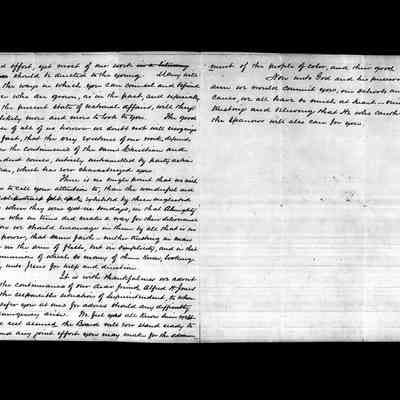 effort, yet most of our work
should be directed to the young. Many will
the ways in which you can counsel and defend
who are grown, as in the past, and especially
the present state of national affairs, will they
likely more and more to look to you. The good
of all of us however we doubt not will recognize
fact, that the very existence of our work, depends
the continuance of the same Christian and
course, entirely untrammelled by party action
which has ever characterized you
There is no single point that we wish
to call your attention to, than the wonderful and
faith exhibited by these neglected
when they were yet in bondage, in that Almighty
who in time did make a way for their deliverance
we should encourage in them by all that is in
power, that same faith - neither trusting in man
in the arm of flesh, but in simplicity, and in that
of which so many of them know, looking
unto Jesus for help and direction.
It is with thankfulness we advert
the continuance of our dear friend Alfred H. Jones
the responsible situation of Superintendent, to whom
refer you at once for advice should any difficulty
emergency arise. We feel you all know him well
rest assured the Board will ever stand ready to
any joint effort you may make for the advance
ment of the people of color, and their good
Now unto God and his preserving
arm we would commit you, our schools and
cause, we all have so much at heart -
trusting and believing that He who careth
the sparrows will also care for you